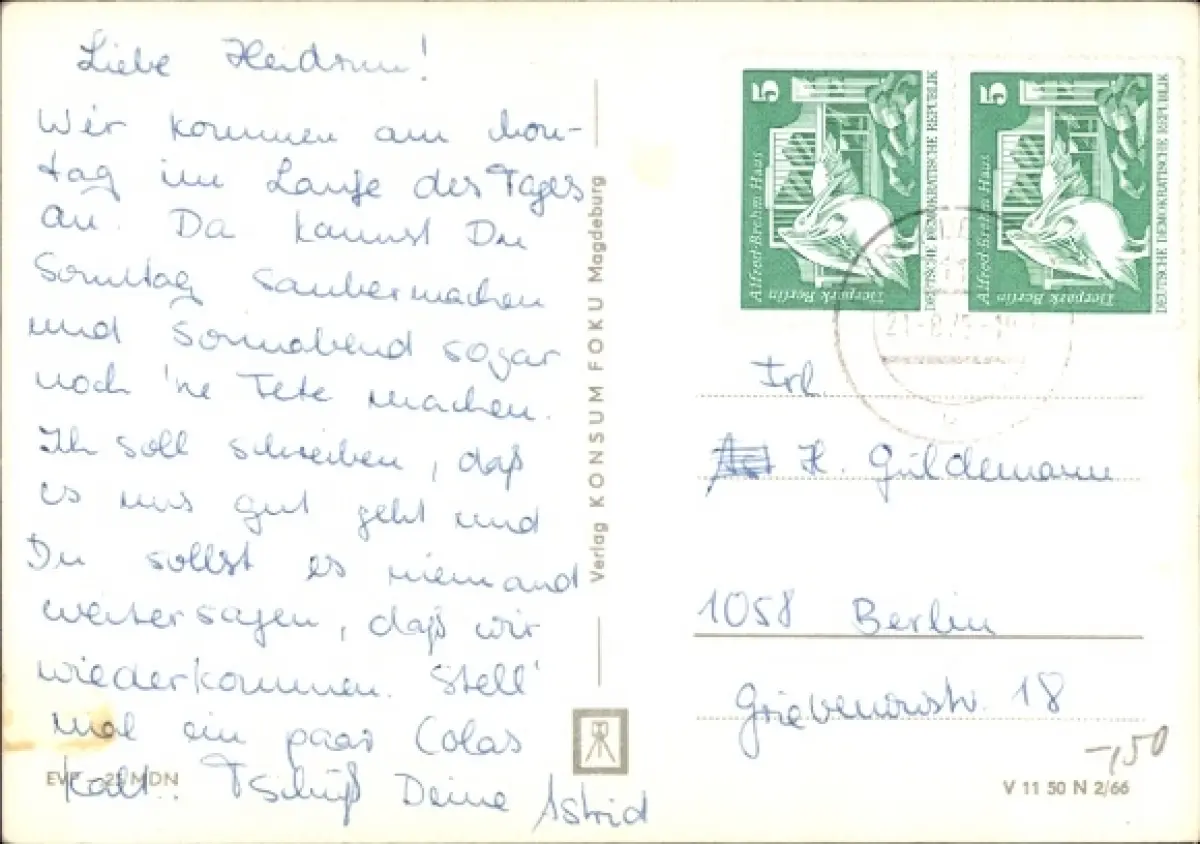 Liebe Heidrun!
Wir kommen am Mon-
tag im Laufe des Tages
an. Da kannst Du
Sonntag saubermachen
und Sonnabend sogar
noch 'ne Fete machen.
Ich soll schreiben, daß
es uns gut geht und
Du sollst es niemand
weitersagen, daß wir
wiederkommen. Stell'
mal ein paar Colas
kalt. Tschüß Deine Astrid
EVP -,25 MDN
Verlag KONSUM FOKU Magdeburg
5
Alfred-Brehm Haus
Tierpark Berlin
DEUTSCHE DEMOKRATISCHE REPUBLIK
5
Alfred-Brehm Haus
Tierpark Berlin
DEUTSCHE DEMOKRATISCHE REPUBLIK
Frl.
H. Güldemann
1058 Berlin
Griebenowstr. 18
-,50
V 11 50 N 2/66